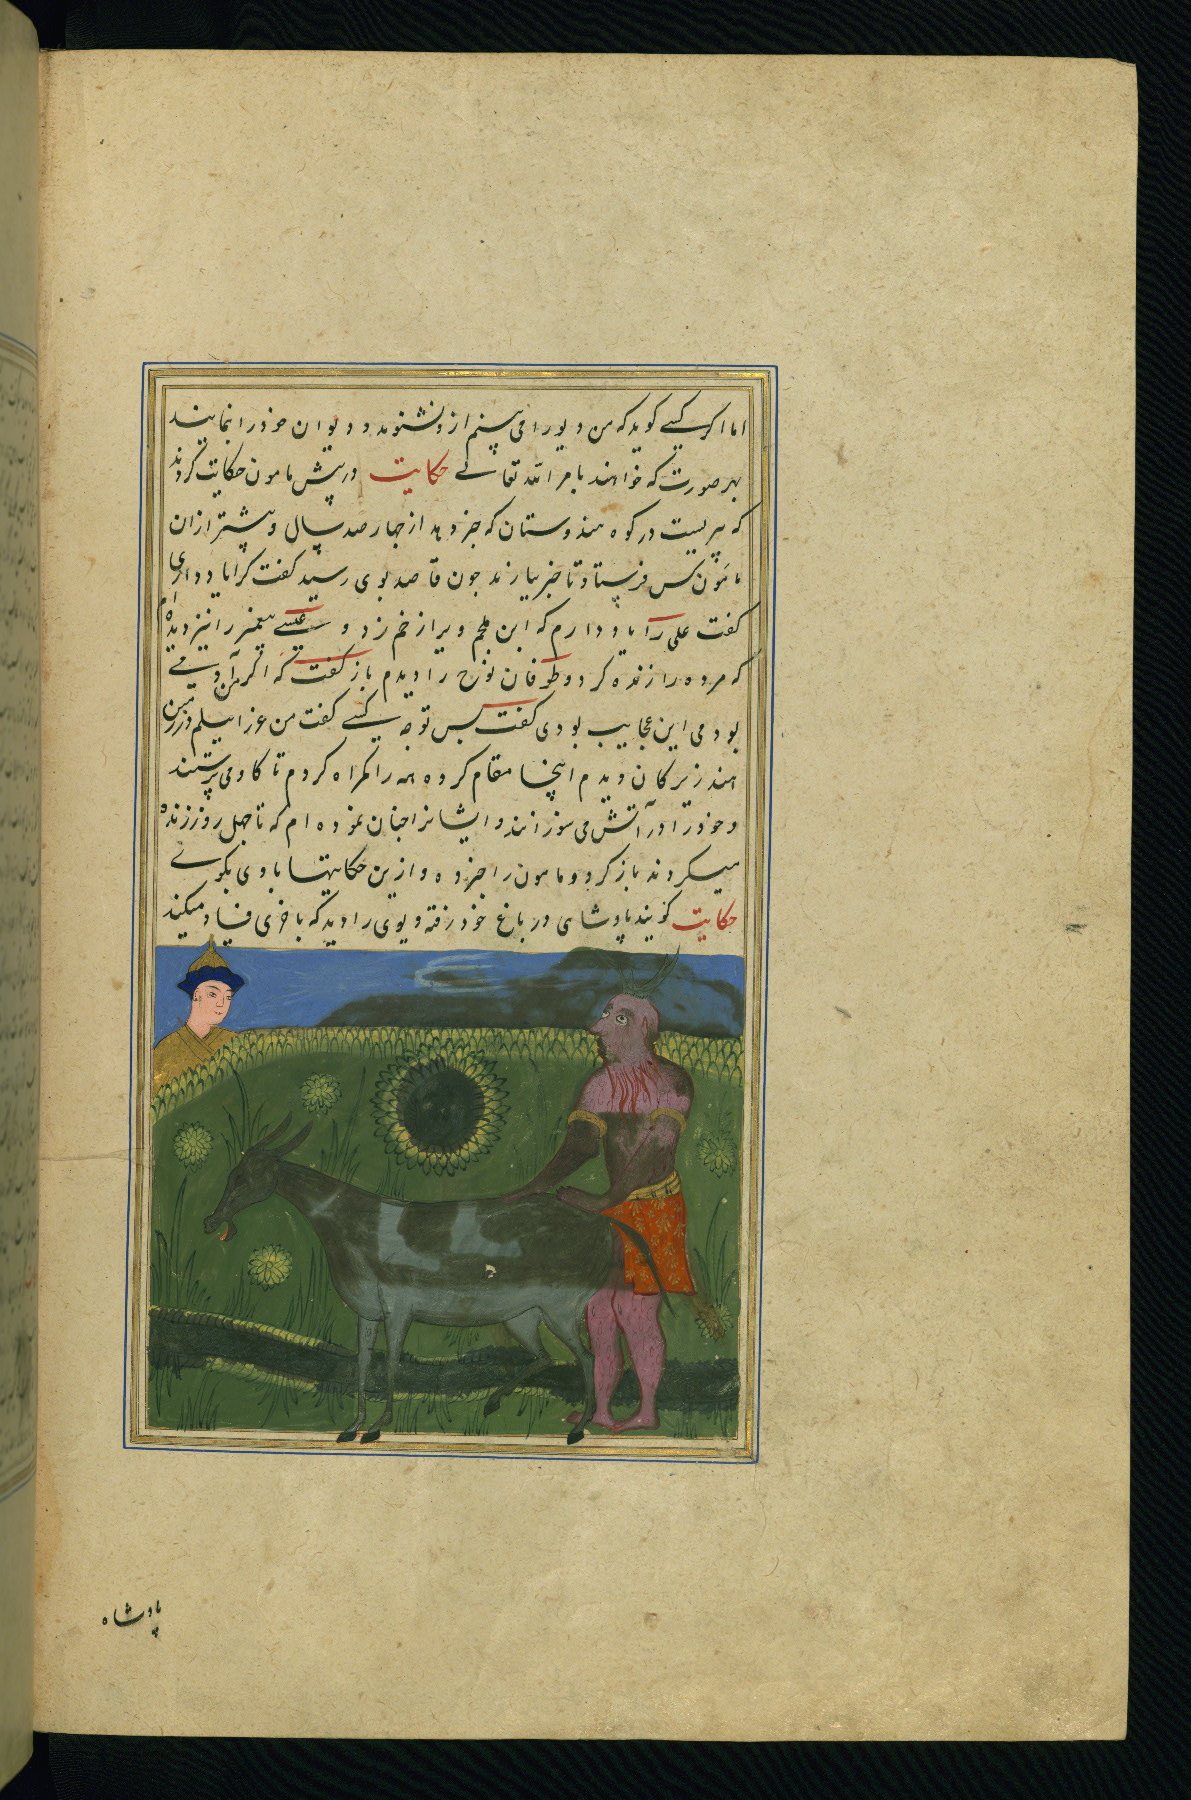 اما اکر کسی کوید که من دیو را می بینم ازو نشنوند و دیوان خود را نمایند
بهر صورت که خواهند بامر الله تعالی حکایت در پیش مامون حکایت کردند
که پیریست در کوه هندوستان که خبر دهد از چهار صد سال و پیشتر ازان
مامون کس فرستاد تا خبر بیارند چون قاصد بوی رسید کفت کرا یاد داری
کفت علی را یاد دارم که ابن ملجم ویرا زخم زد و عیسی پیغمبر را نیز دیده ام
که مرده را زنده کرد و طوفان نوح را دیدم باز کفت که اکر مرا
بودمی این عجایب بودی کفت پس تو چه کسی کفت من عزازیلم در زمین
هند زیرکان دیدم اینجا مقام کرده همه را کمراه کردم تا کاو می پرستند
و خود را در آتش می سوزانند و ایشانرا چنان نموده ام که تا چهل روز زنده
میکردند باز کرد و مامون را خبر ده و ازین حکایتها با وی بکوی
حکایت کویند پادشاهی در باغ خود رفته دیوی را دید که با خری فساد میکند
پادشاه